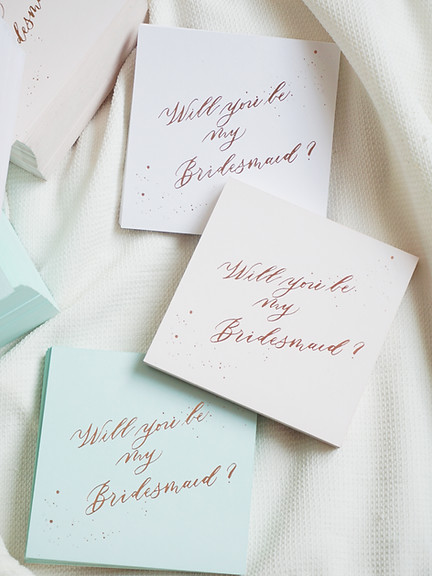 desmaid?
Will you be
my
Bridesmaid?
Will you be
my
Bridesmaid?
Will you be
my
Bridesmaid?